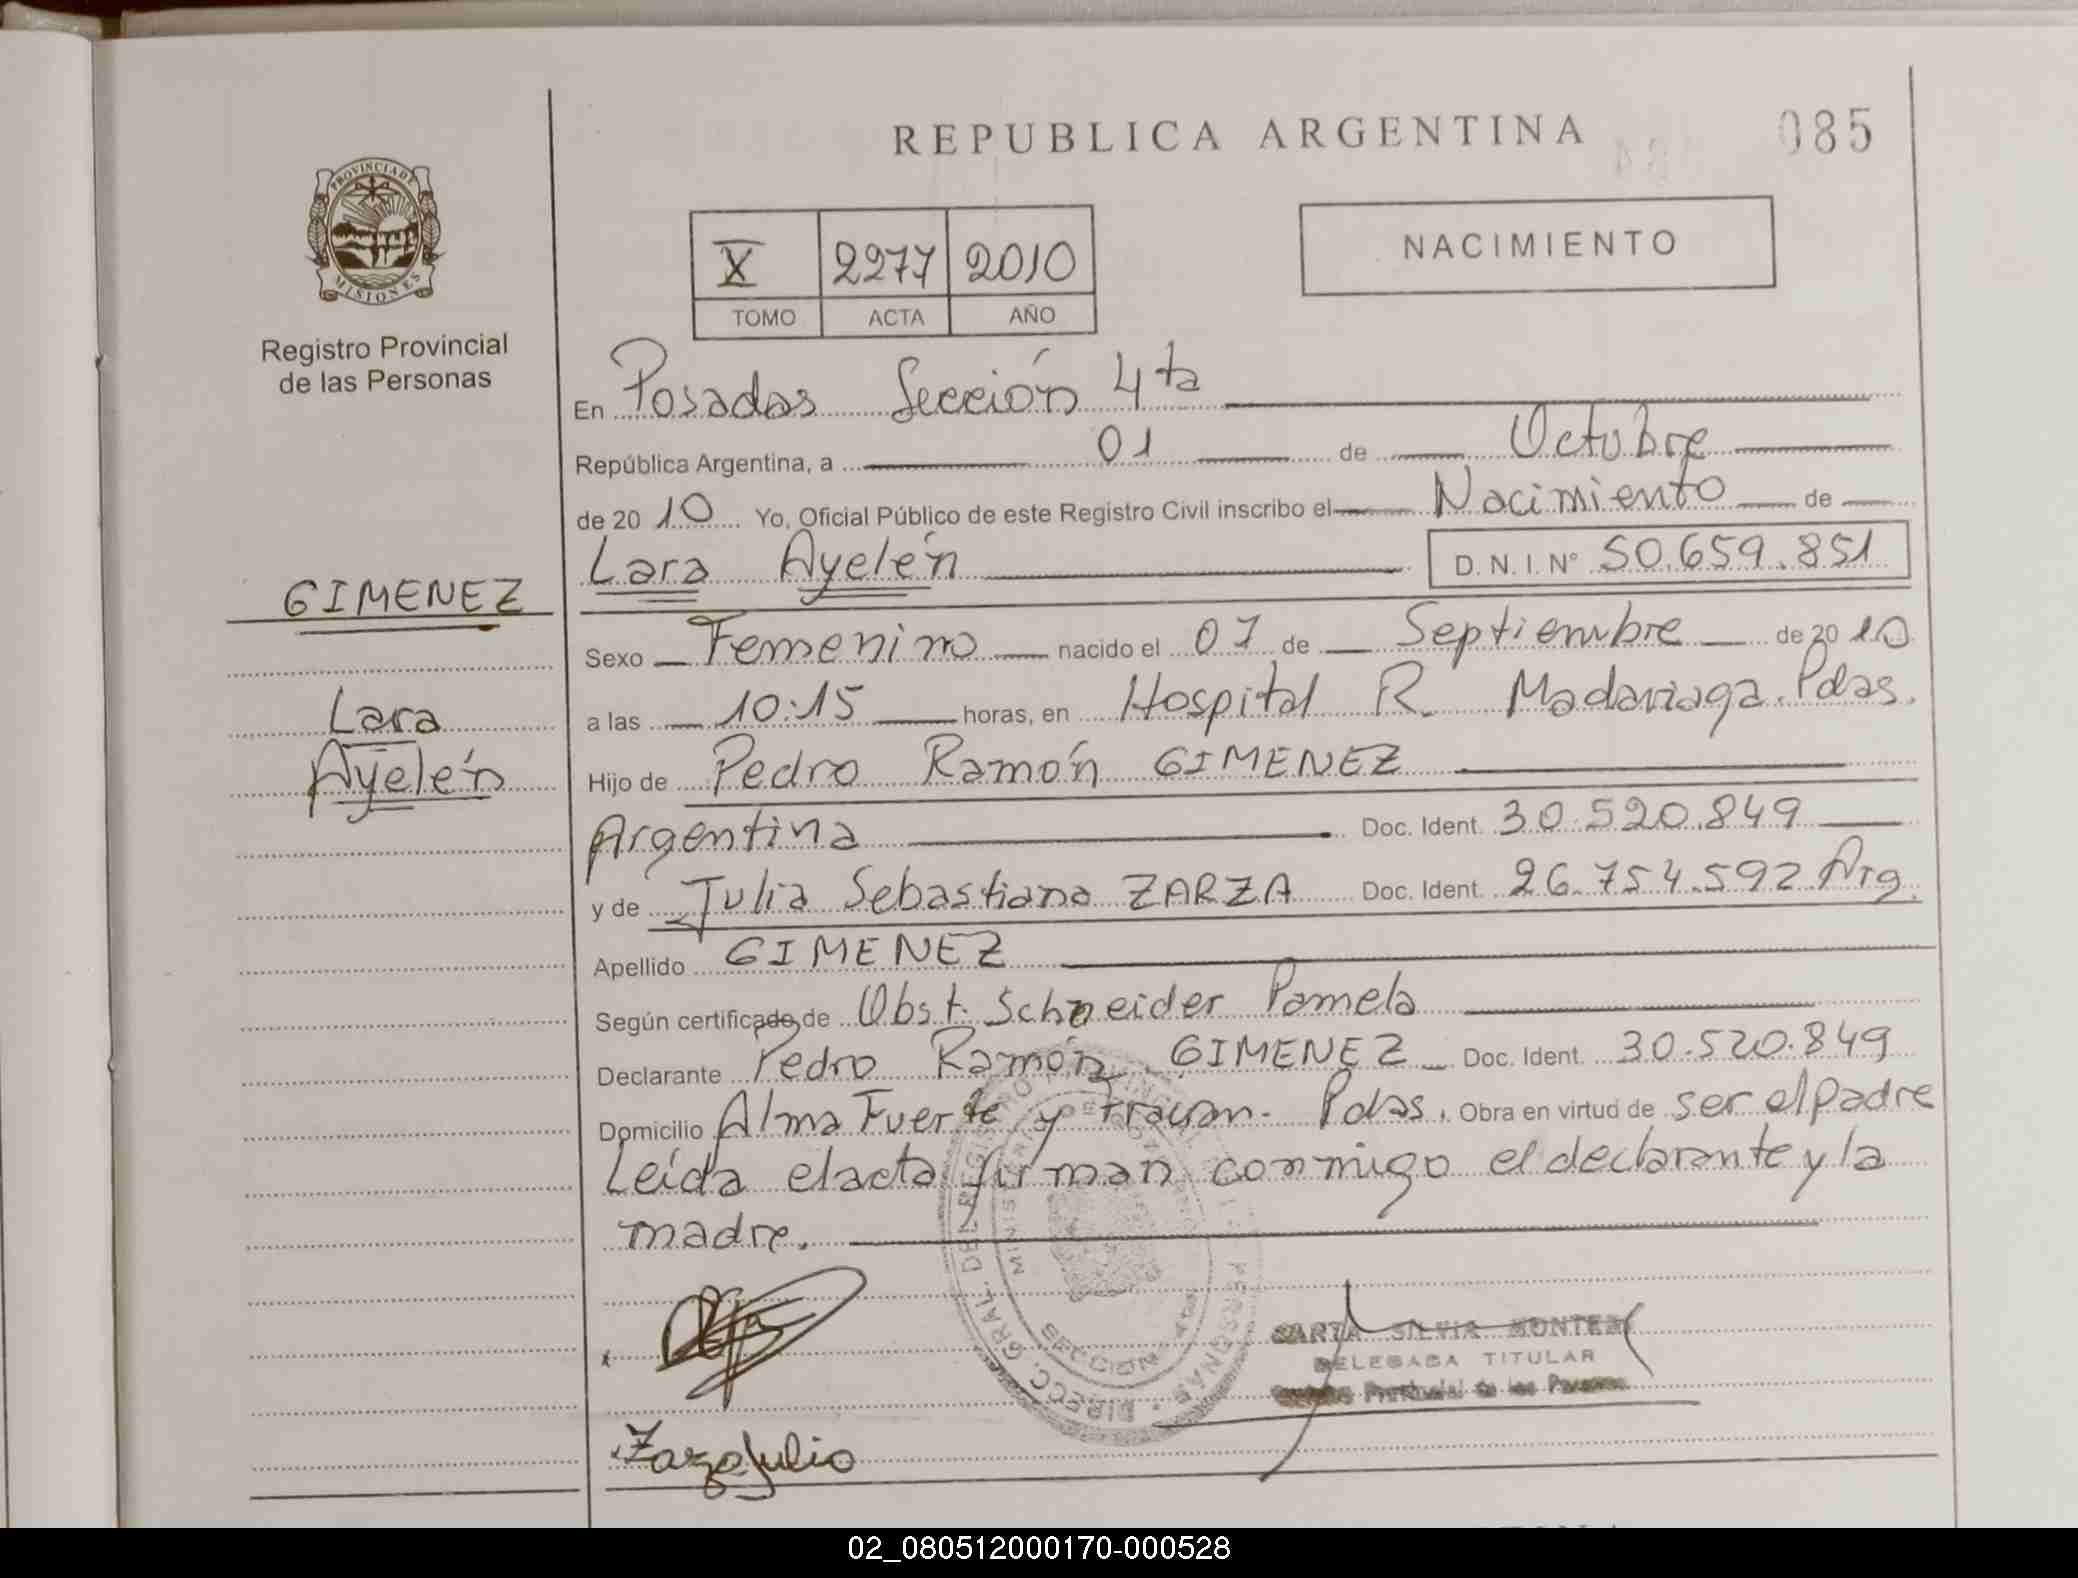 REPUBLICA ARGENTINA
085
PROVINCIA DE
MISIONES
Registro Provincial
de las Personas
X 2277 2010
TOMO ACTA AÑO
NACIMIENTO
En Posadas Sección 4ta
República Argentina, a 01 de Octubre
de 2010 Yo, Oficial Público de este Registro Civil inscribo el Nacimiento de
Lara Ayelén D.N.I. N° 50.659.851
GIMENEZ
Lara
Ayelén
Sexo Femenino nacido el 07 de Septiembre de 2010
a las 10:15 horas, en Hospital R. Madariaga. Pdas.
Hijo de Pedro Ramón GIMENEZ
Argentina Doc. Ident. 30.520.849
y de Julia Sebastiana ZARZA Doc. Ident. 26.754.592 Arg.
Apellido GIMENEZ
Según certificado de Obst. Schneider Pamela
Declarante Pedro Ramón GIMENEZ Doc. Ident. 30.520.849
Domicilio Alma Fuerte y Pdas. Obra en virtud de ser el padre
Leída el acta firman conmigo el declarante y la
madre.
DIRECC. GRAL. DEL REGISTRO PERSONAS
SECCION
SILVIA
DELEGADA TITULAR
Provincial de las Personas
02_080512000170-000528